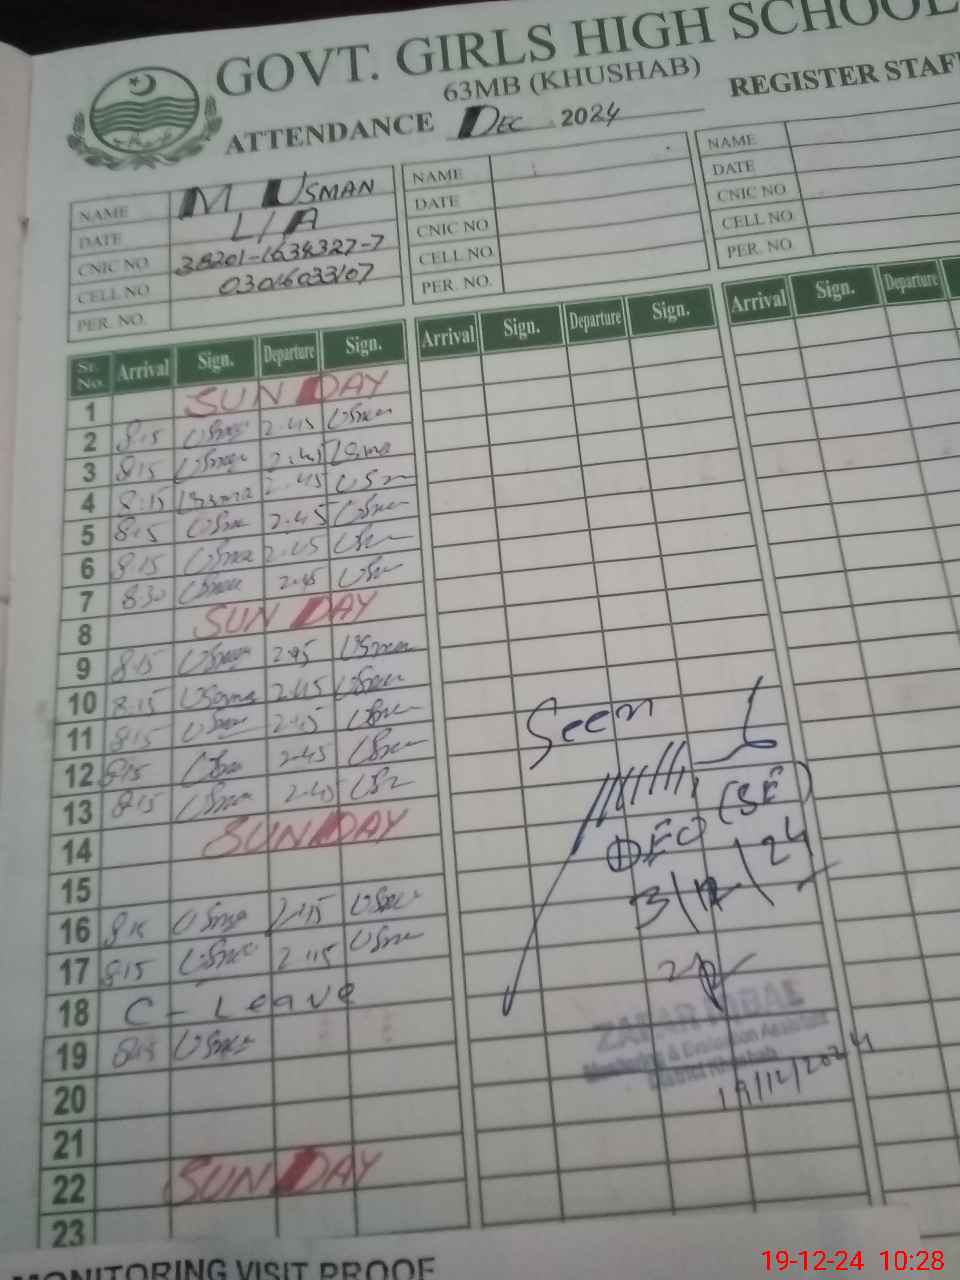 GOVT. GIRLS HIGH SCHOOL
63MB (KHUSHAB)
ATTENDANCE Dec 2024 REGISTER STAF
NAME M USMAN
DATE L/A
CNIC NO
CELL NO 03016033107
PER. NO.
NAME
DATE
CNIC NO
CELL NO
PER. NO.
NAME
DATE
CNIC NO
CELL NO
PER. NO.
Sr. No. Arrival Sign. Departure Sign. Arrival Sign. Departure Sign. Arrival Sign. Departure
1 SUNDAY
2 8.15 2.45
3 8.15 2.45
4 8.15 2.45
5 8.15 2.45
6 8.15 2.45
7 8.30 2.45
8 SUNDAY
9 8.15 2.45
10 8.15 2.45
11 8.15 2.45
12 8.15 2.45
13 8.15 2.45
14 SUNDAY
15
16 8.15 2.45
17 8.15 2.45
18 C - Leave
19 8.15
20
21
22 SUNDAY
23
Seen
DEO (SE)
3/12/24
ZAFAR IQBAL
Monitoring & Evaluation Assistant
District Khushab
19/12/2024
MONITORING VISIT PROOF
19-12-24 10:28